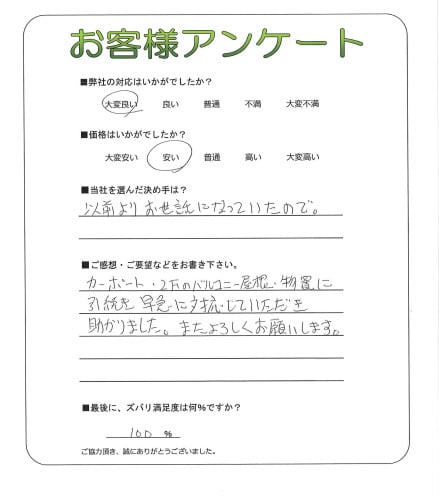 お客様アンケート
■弊社の対応はいかがでしたか?
大変良い 良い 普通 不満 大変不満
■価格はいかがでしたか?
大変安い 安い 普通 高い 大変高い
■当社を選んだ決め手は?
以前よりお世話になっていたので。
■ご感想・ご要望などをお書き下さい。
カーポート・2方のバルコニー屋根・物置に
引続き早急に対応していただき
助かりました。またよろしくお願いします。
■最後に、ズバリ満足度は何%ですか?
100 %
ご協力頂き、誠にありがとうございました。